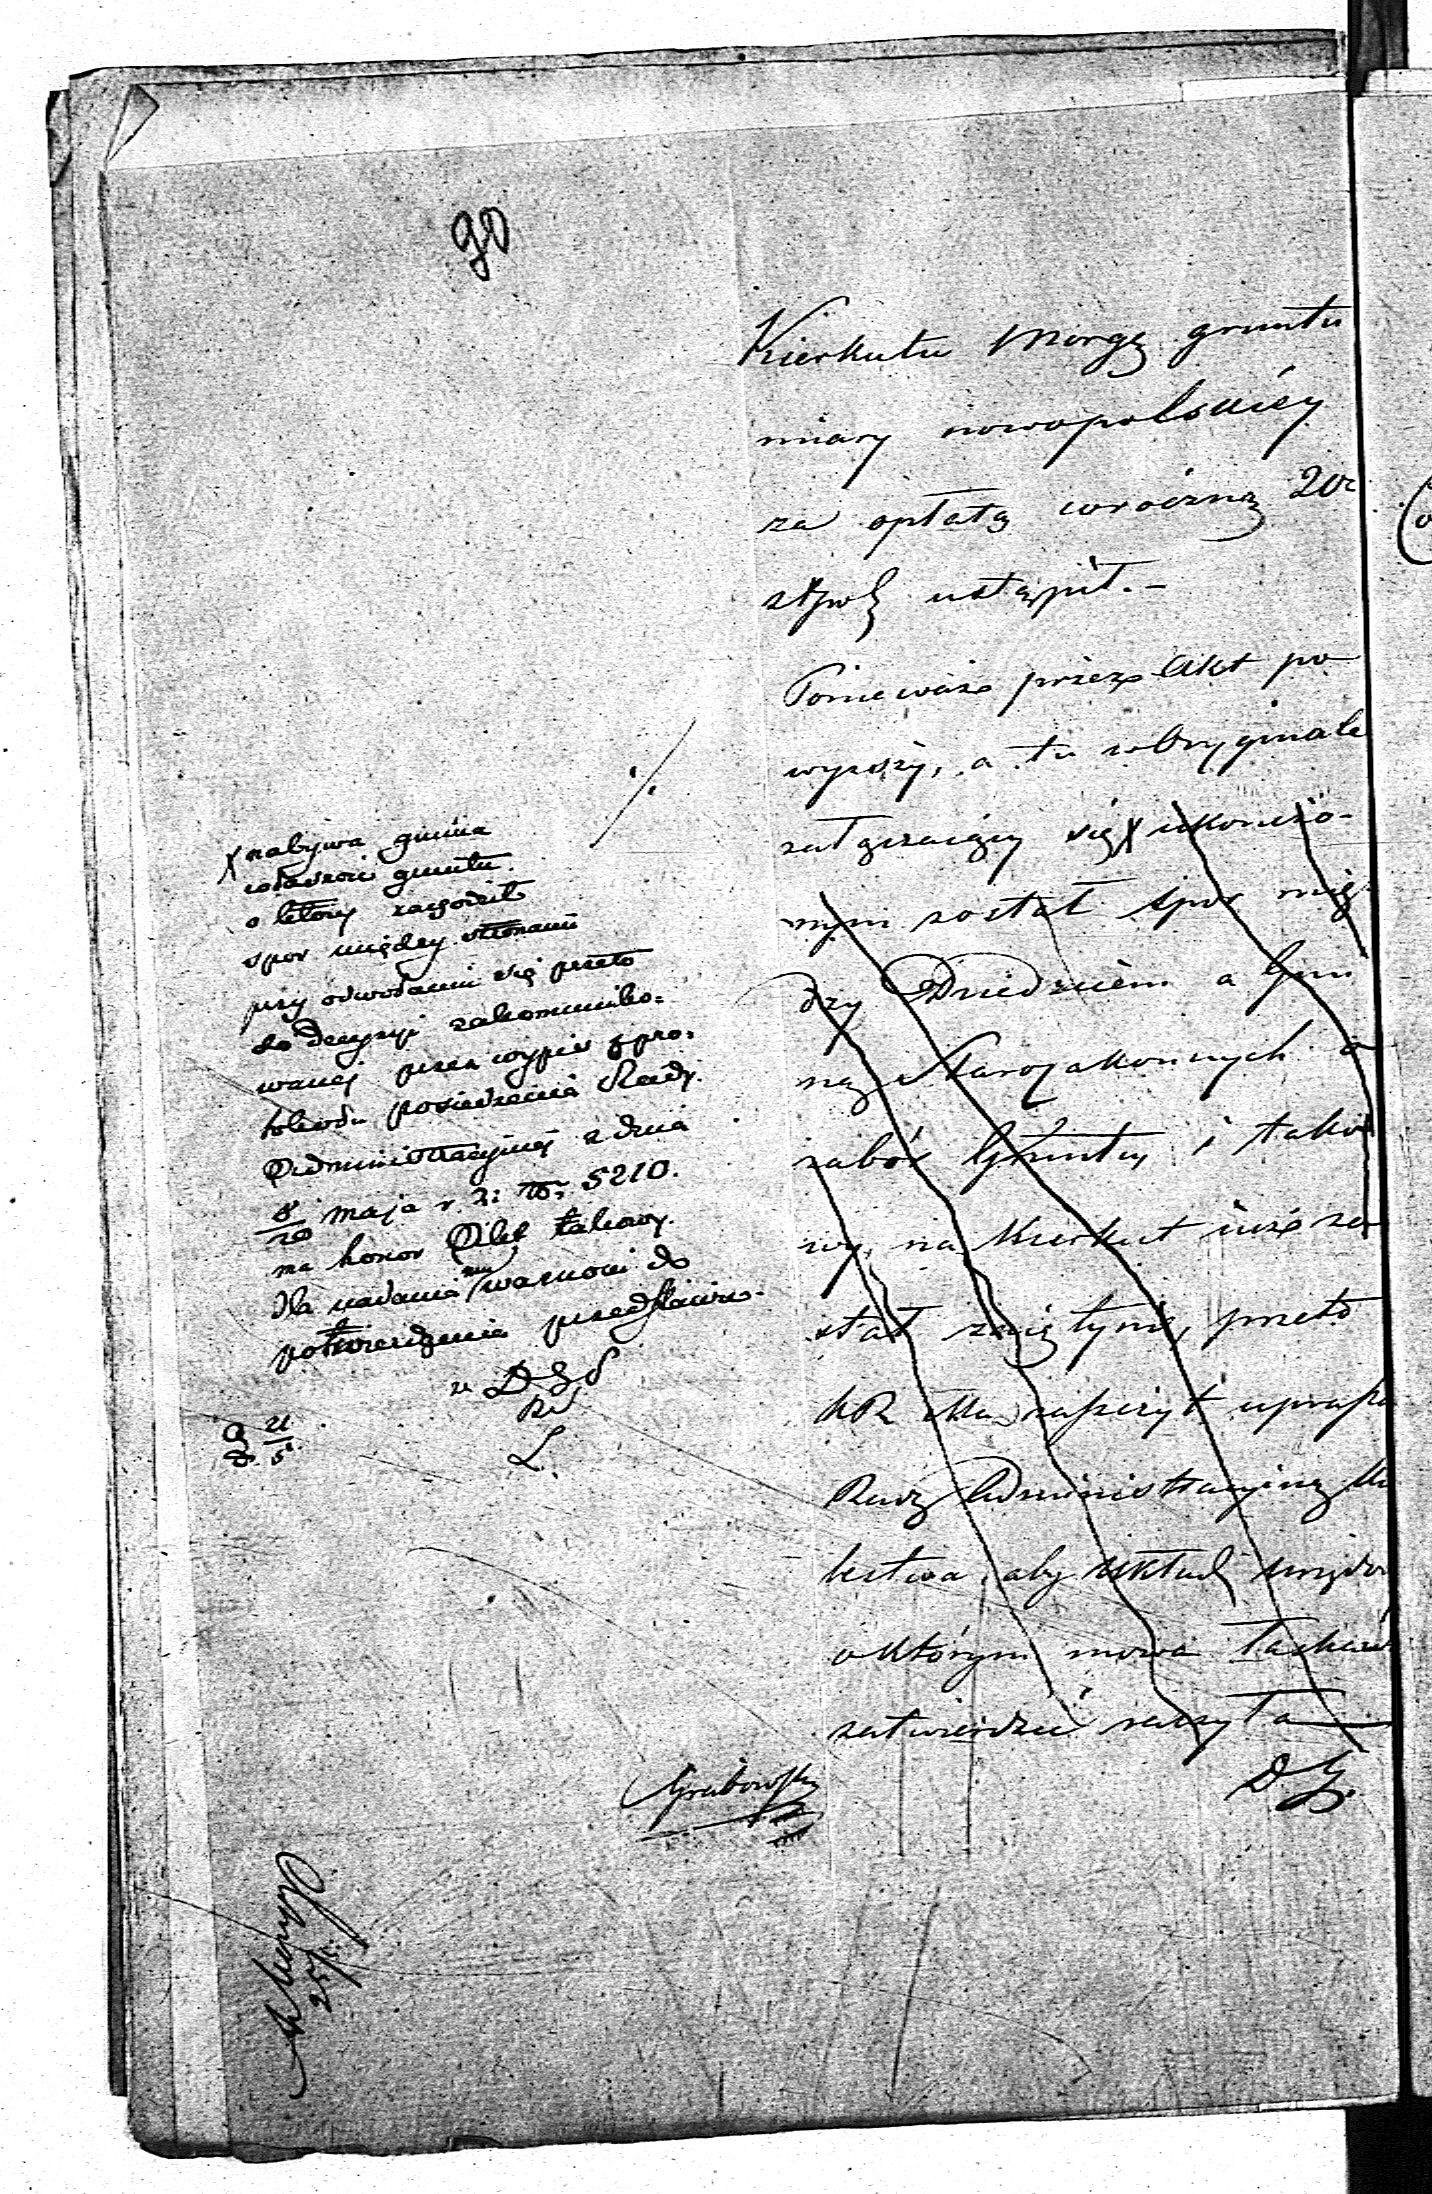 90
Kierkutu Morgę gruntu
miary nowopolskiéy
za opłatą coroczną Zł
ustąpił. –
Ponieważ przez Akt po
wyższy, a tu w Oryginale
załączaiący się X ukończo-
nym został spór mię
dzy Dziedzicem a Gmi
ną Starozakonnych o
zabór Gruntu i tako
wy na Kierkut iuż zo
stał zaięty, przeto
KR Ma zaszczyt uprasz
Radę Administracyiną Kró
lestwa, aby Układ
o którym mowa łaskawie
zatwierdzić raczyła
X nabywa gmina
własność gruntu
o który zachodził
spor między stronami
przy odwołaniu się przeto
do decyzyi zakommuniko-
wanej przez wypis z pro-
tokołu posiedzenia Rady
Administracyjnej z dnia
8/20 maja r. b: No 5210.
ma honor Akt takowy
dla nadania mu ważności do
potwierdzenia przedstawić.
L.
21/5
Grabowski